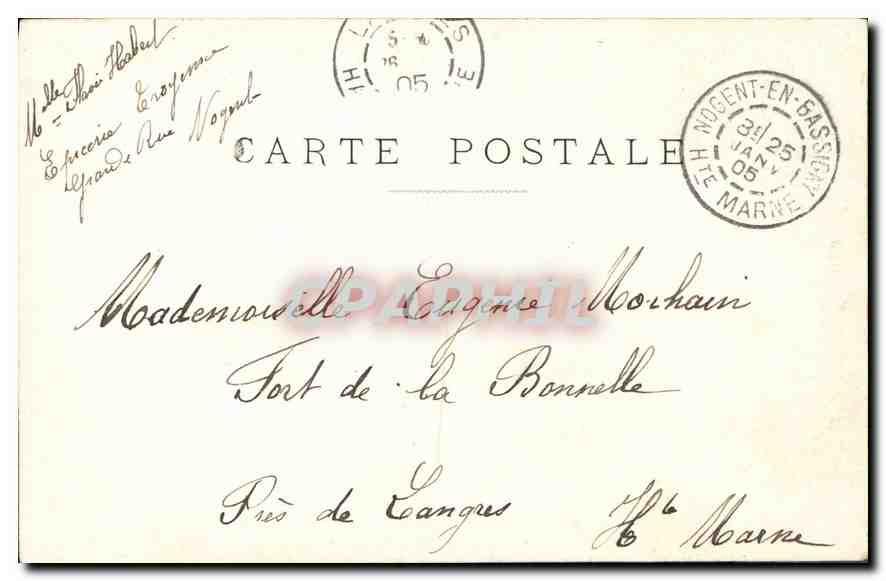 Mlle Marie Habert
Epicerie Troyenne
Grande Rue Nogent
CARTE POSTALE
NOGENT-EN-BASSIGNY
8E/25
JANV
05
HTE MARNE
05
CPAPHIL
Mademoiselle Eugenie Morhain
Fort de la Bonnelle
Près de Langres
Hte Marne